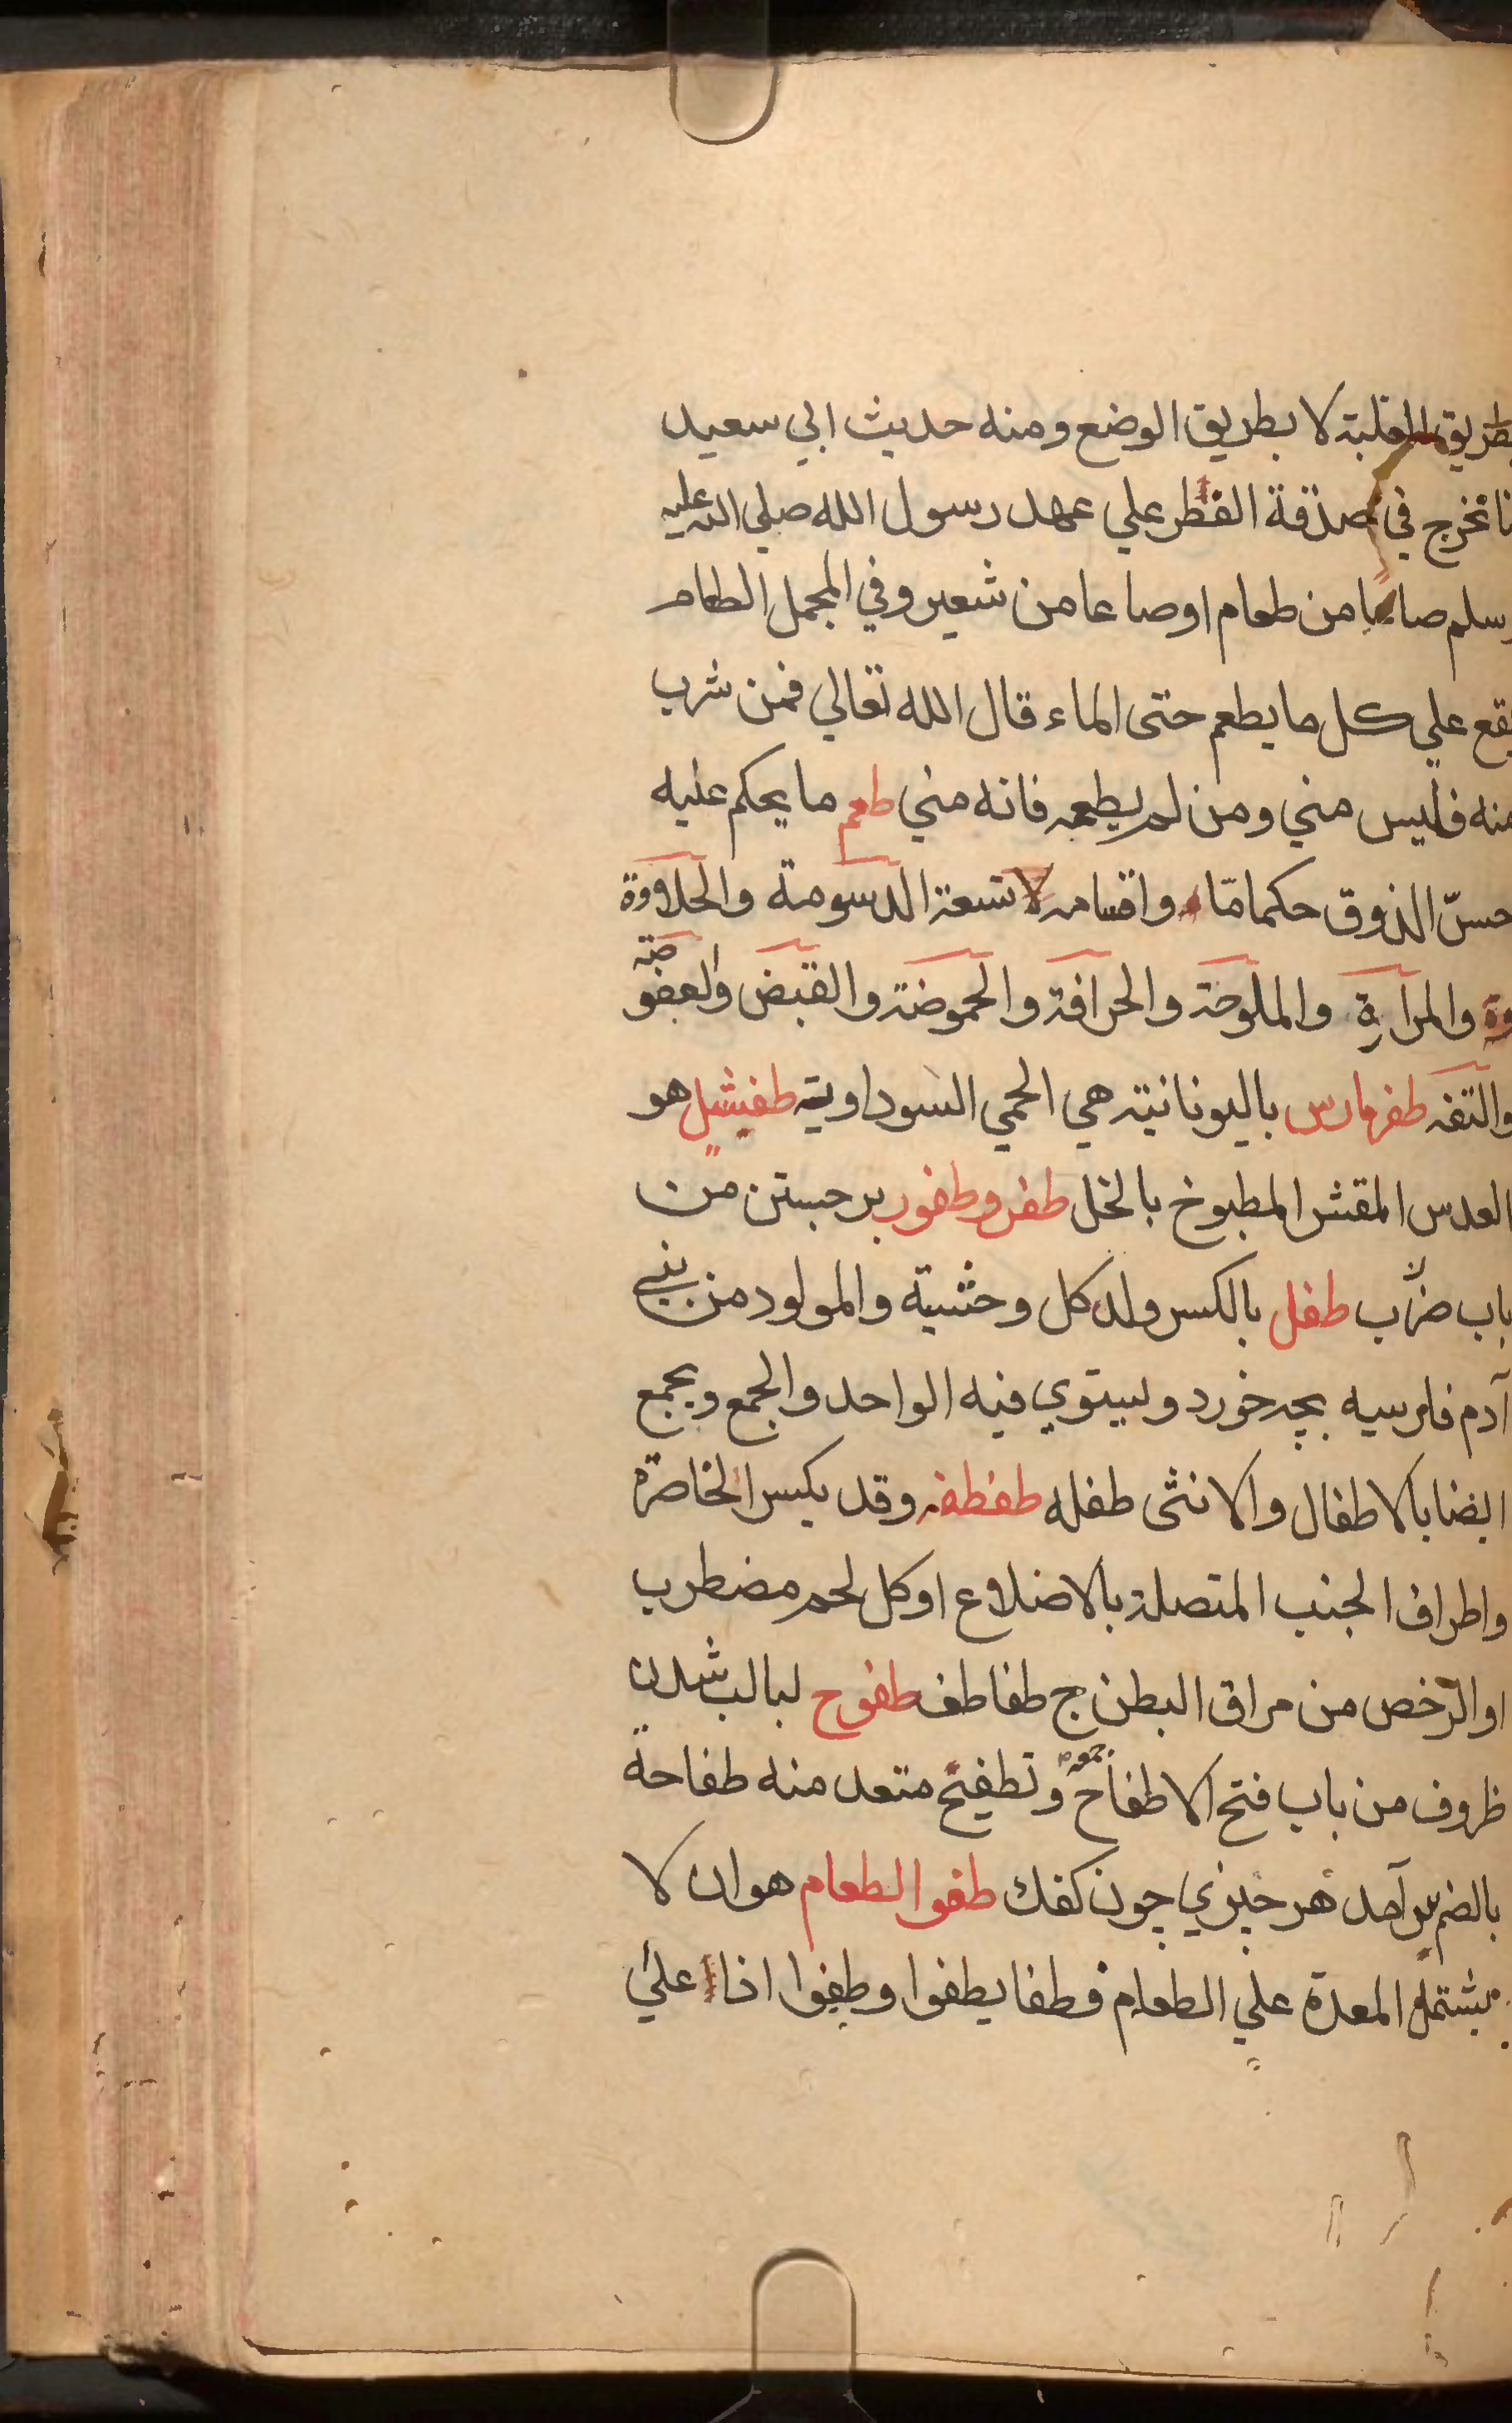 بطريق الغلبة لا بطريق الوضع ومنه حديث ابي سعيد
نا نخرج في صدقة الفطر علي عهد رسول الله صلي الله عليه
وسلم صاعا من طعام او صاعا من شعير وفي المجمل الطعام
يقع علي كل ما يطعم حتى الماء قال الله تعالي فمن شرب
منه فليس مني ومن لم يطعمه فانه مني طعم ما يحكم عليه
حسّ الذوق حكما مّا واقسامه تسعة الدسومة والحلاوة
والمرارة والملوحة والحرافة والحموضة والقبض والعفوضة
والتفه طفرمارس باليونانية هي الحمي السوداوية طفيشل هو
العدس المقشر المطبوخ بالخل طفر وطفور برجستن من
باب ضرب طفل بالكسر ولد كل وحشية والمولود من بني
آدم فارسيه بچه خورد ويستوي فيه الواحد والجمع ويجمع
ايضا بالاطفال والانثى طفله طفطفه وقد يكسر الخاصرة
واطراف الجنب المتصلة بالاضلاع او كل لحم مضطرب
او الرخص من مراق البطن ج طفاطف طفوح لبالب شدن
ظروف من باب فتح الاطفاح وتطفيح متعد منه طفاحة
بالضم بر آمد هر چيزي چون كفك طفو الطعام هو ان لا
يشتمل المعدة علي الطعام فطفا يطفوا وطفوا اذا علي